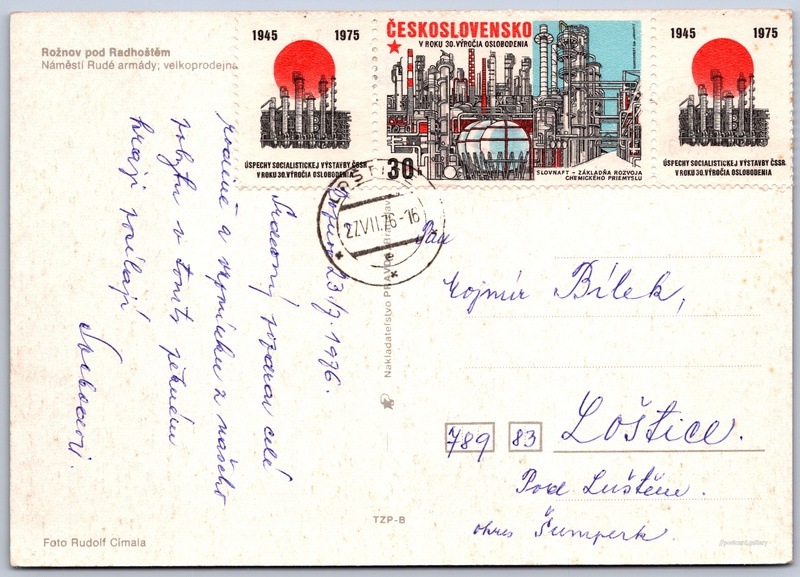 Rožnov pod Radhoštěm
Náměstí Rudé armády; velkoprodejna
1945 1975
ÚSPECHY SOCIALISTICKEJ VÝSTAVBY ČSSR
V ROKU 30. VÝROČIA OSLOBODENIA
ČESKOSLOVENSKO
V ROKU 30. VÝROČIA OSLOBODENIA
30
SLOVNAFT - ZÁKLADŇA ROZVOJA
CHEMICKÉHO PRIEMYSLU
1945 1975
ÚSPECHY SOCIALISTICKEJ VÝSTAVBY ČSSR
V ROKU 30. VÝROČIA OSLOBODENIA
27.VII.76-16
23./7. 1976.
Srdečný pozdrav celé
rodině a z našeho
pobytu v tomto pěkném
kraji posílají
Nakladatelství PRAVDA Bratislava
Pan
Mojmír Bílek,
789 83 Loštice.
Pod Luštěm.
okres Šumperk.
TZP-B
Foto Rudolf Címala
postcard.gallery